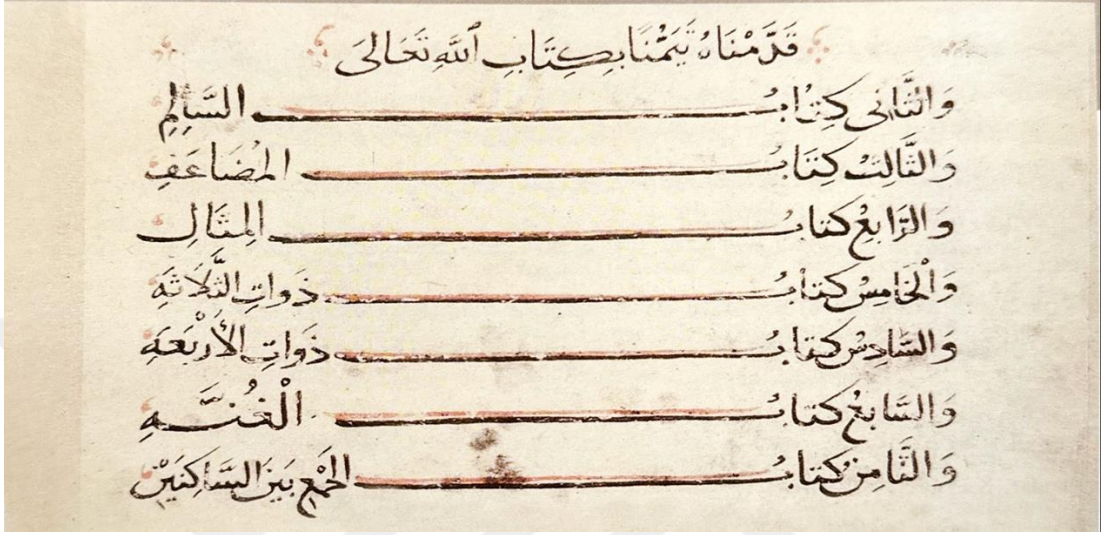 قَدَّمْنَاهُ تَيَمُّنًا بِكِتَابِ ٱللَّهِ تَعَالَى
وَالثَّانِى كِتَابُ السَّالِمِ
وَالثَّالِثُ كِتَابُ الْمُضَاعَفِ
وَالرَّابِعُ كتابُ الْمِثَالِ
وَالْخَامِسُ كتابُ ذَوَاتِ الثَّلَاثَةِ
وَالسَّادِسُ كتابُ ذَوَاتِ الْأَرْبَعَةِ
وَالسَّابِعُ كتابُ الْغُنَّةِ
وَالثَّامِنُ كتابُ الْجَمْعِ بَيْنَ السَّاكِنَيْنِ